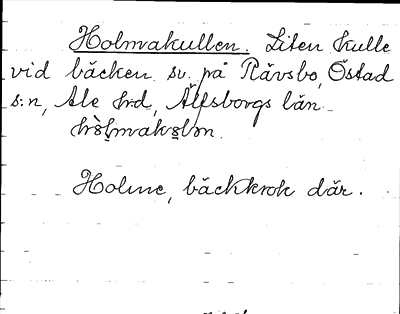 Holmakullen. Liten kulle
vid bäcken sv. på Rävsbo, Östad
s:n, Ale hrd, Älfsborgs län.
Holme, bäckkrok där.